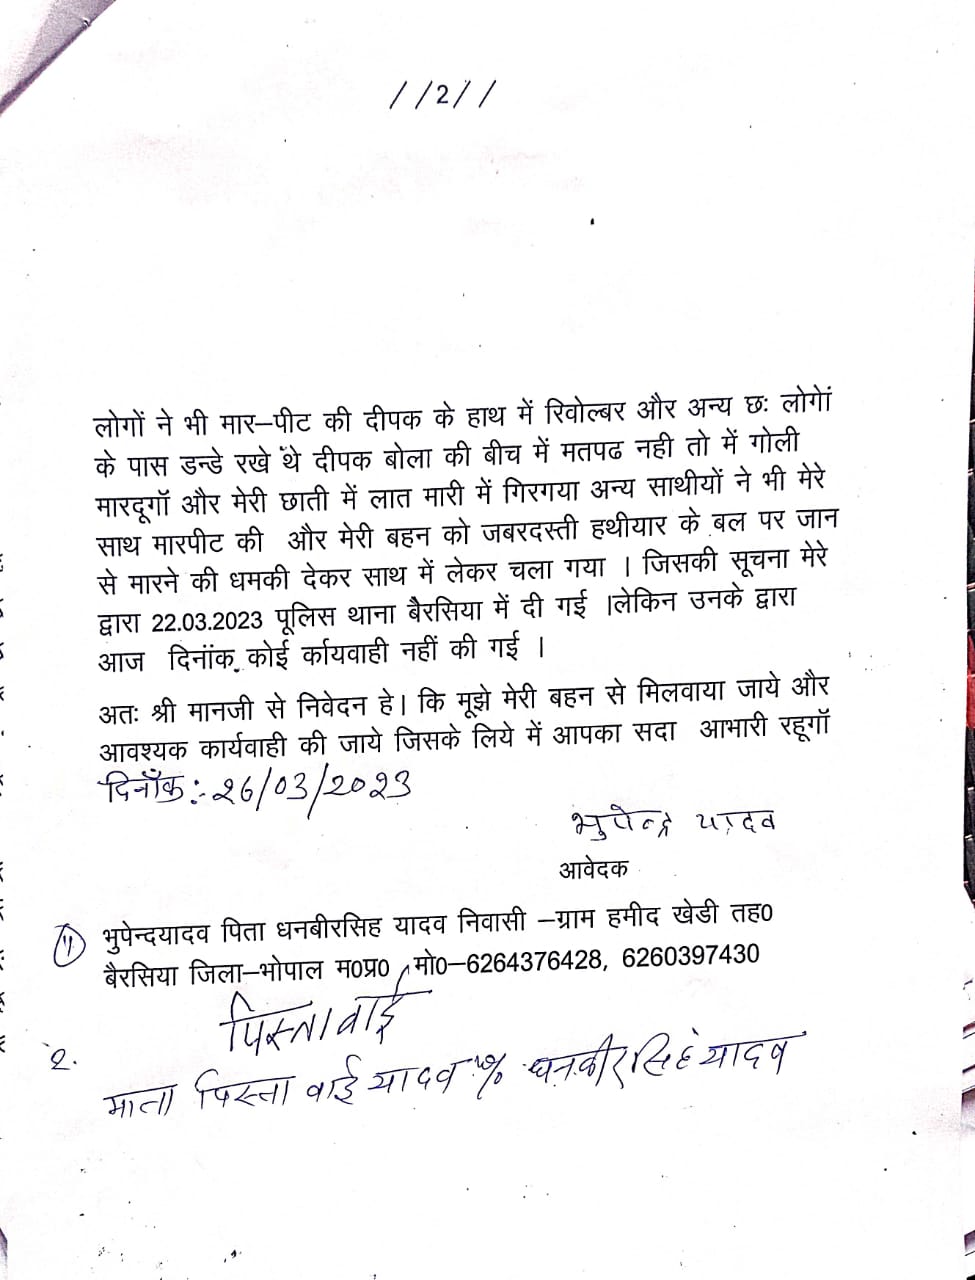 //2//
लोगों ने भी मार–पीट की दीपक के हाथ में रिवोल्बर और अन्य छः लोगों
के पास डन्डे रखे थे दीपक बोला की बीच में मतपढ नही तो में गोली
मारदूगॉ और मेरी छाती में लात मारी में गिरगया अन्य साथीयों ने भी मेरे
साथ मारपीट की और मेरी बहन को जबरदस्ती हथीयार के बल पर जान
से मारने की धमकी देकर साथ में लेकर चला गया । जिसकी सूचना मेरे
द्वारा 22.03.2023 पूलिस थाना बैरसिया में दी गई ।लेकिन उनके द्वारा
आज दिनांक कोई र्कायवाही नहीं की गई ।
अतः श्री मानजी से निवेदन हे। कि मूझे मेरी बहन से मिलवाया जाये और
आवश्यक कार्यवाही की जाये जिसके लिये में आपका सदा आभारी रहूगॉ
दिनाँक :- 26/03/2023
भुपेन्द्र यादव
आवेदक
1) भुपेन्दयादव पिता धनबीरसिह यादव निवासी –ग्राम हमीद खेडी तह0
बैरसिया जिला–भोपाल म0प्र0 मो0–6264376428, 6260397430
पिस्ताबाई
2. माता पिस्ता बाई यादव % धनबीरसिंह यादव